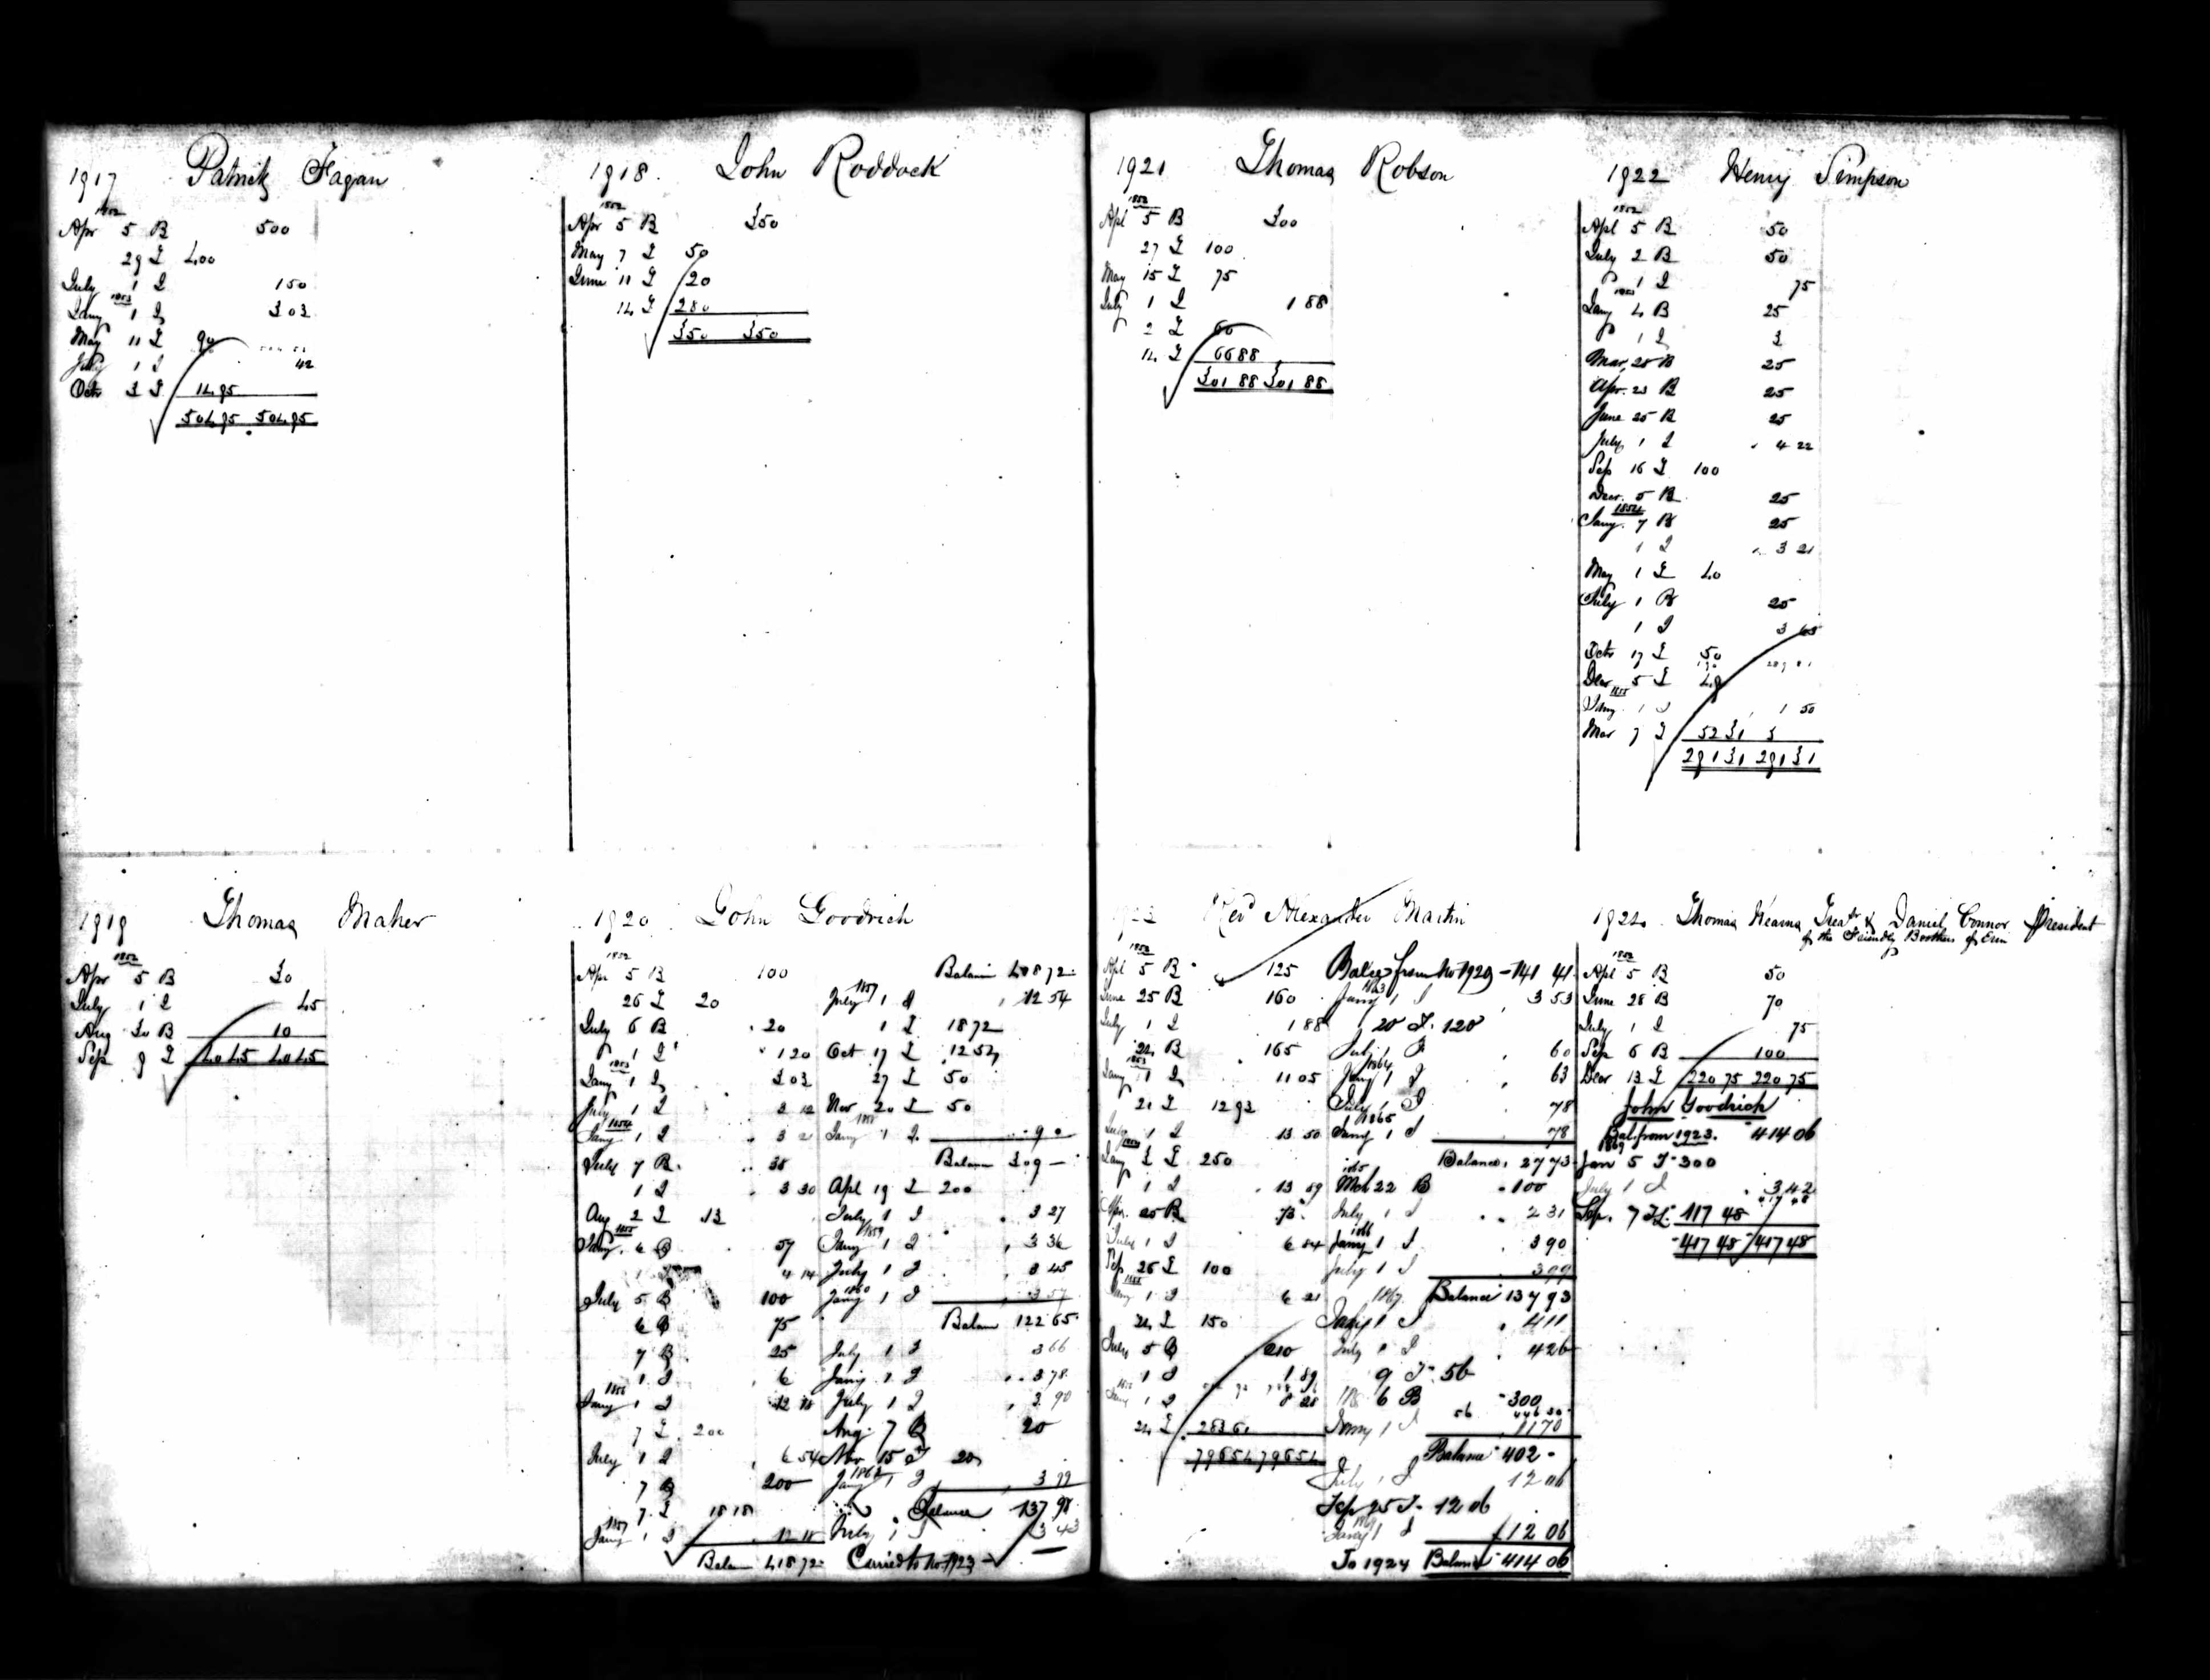 1917 Patrick Fagan
1852
Apr 5 B 500
29 I 400
July 1 I 150
1853
Jany 1 I 303
May 11 I 90
July 1 I 42
Octr 3 I 14.95
504.95 504.95
1918. John Roddock
1852
Apr 5 B 350
May 7 I 50
June 11 I 20
14 I 280
350 350
1919 Thomas Maher
1852
Apr 5 B 30
July 1 I 45
Aug 30 B 10
Sep 9 I 40 45 40 45
1920 John Goodrich
1852
Apr 5 B 100
26 I 20
July 6 B 20
1 I 1 20
1853
Jany 1 I 3 03
July 1 I 3 12
1854
Jany 1 I 3 21
July 7 B 38
1 I 3 30
Aug 2 I 13
1855
Jany 6 B 57
4 14
July 5 B 100
6 B 75
7 B 25
1 I 6
1856
Jany 1 I 12 18
7 I 200
July 1 I 6 54
7 B 200
7 I 18 18
1857
Jany 1 I 12 18
Balan 418 72
Balan 408 72
1857
July 1 I 12 54
1 I 18 72
Oct 17 I 12 54
27 I 50
Nov 20 I 50
1858
Jany 1 I 9 0
Balan 309 —
Apl 19 I 200
July 1 I 3 27
1859
Jany 1 I 3 36
July 1 I 3 45
1860
Jany 1 I 3 57
Balan 122 65
July 1 I 3 66
Jany 1 I 3 78
July 1 I 3 90
Aug 7 B 20
Nov 15 I 20
1862
Jany 1 I 3 99
Balance 137 98
July 1 I 3 43
Carried to No. 1923
1921 Thomas Robson
1852
Apl 5 B 300
27 I 100
May 15 I 75
July 1 I 1 88
2 I 60
14 I 66 88
301 88 301 88
1922 Henry Simpson
1852
Apl 5 B 50
July 2 B 50
1 I 75
1853
Jany 4 B 25
1 I 3
Mar 25 B 25
Apr. 23 B 25
June 25 B 25
July 1 I 4 22
Sep 16 I 100
Decr. 5 B 25
1854
Jany. 7 B 25
1 I 3 21
May 1 I 40
July 1 B 25
1 I 3 63
Octr 17 I 50
Decr 5 I 49
1855
Jany 1 I 1 50
Mar 7 I 52 31
291 31 291 31
1923 Revd Alexander Martin
1852
Apl 5 B 125
June 25 B 160
July 1 I 1 88
24 B 165
1853
Jany 1 I 11 05
21 I 12 93
July 1 I 13 50
1854
Jany 3 I 250
1 I 13 89
Apr. 25 B 73
July 1 I 6 84
Sep 26 I 100
1855
Jany 1 I 6 21
24 I 150
July 5 B 210
1 I 1 89
1856
Jany 1 I 8 28
24 I 283 61
796 54 796 54
Balce from No 1920 - 141 41
1863
Jany 1 I 3 53
20 I. 120
July 1 I 60
1864
Jany 1 I 63
July 1 I 78
1865
Jany 1 I 78
Balance. 27 73
1865
Mch 22 B 100
July 1 I 2 31
1866
Jany 1 I 3 90
July 1 I 3 99
1867 Balance 137 93
Jany 1 I 4 11
July 1 I 4 26
9 I 56
6 B 300
Jany 1 I 11 70
Balance 402 -
July 1 I 12 06
Sep 25 I. 12 06
1869
Jany 1 I 12 06
To 1924 Balance 414 06
1924 Thomas Kearns Treasr & Daniel Connor President
of the Friendly Brothers of Erin
1852
Apl 5 B 50
June 28 B 70
July 1 I 75
Sep 6 B 100
Decr 13 I 220 75 220 75
John Goodrich
Bal. from 1923. 414 06
1869
Jan 5 I 300
July 1 I 3 42
Sep. 7 I 117 48
417 48 417 48